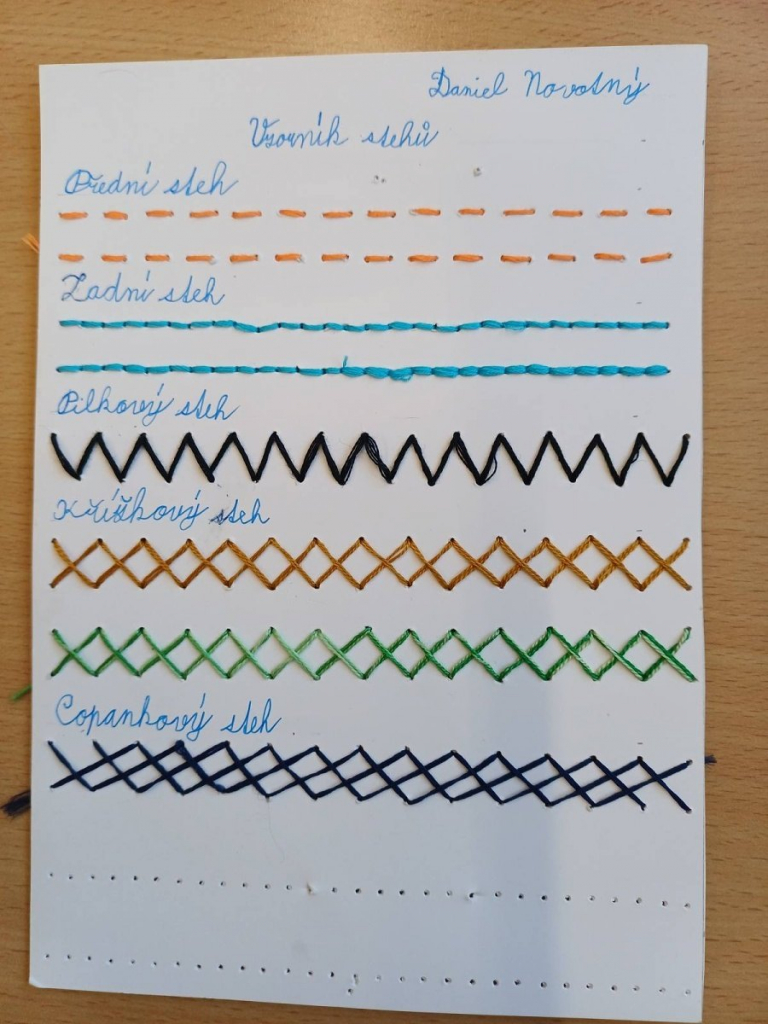 Daniel Novotný
Vzorník stehů
Přední steh
Zadní steh
Pilkový steh
Křížkový steh
Copankový steh